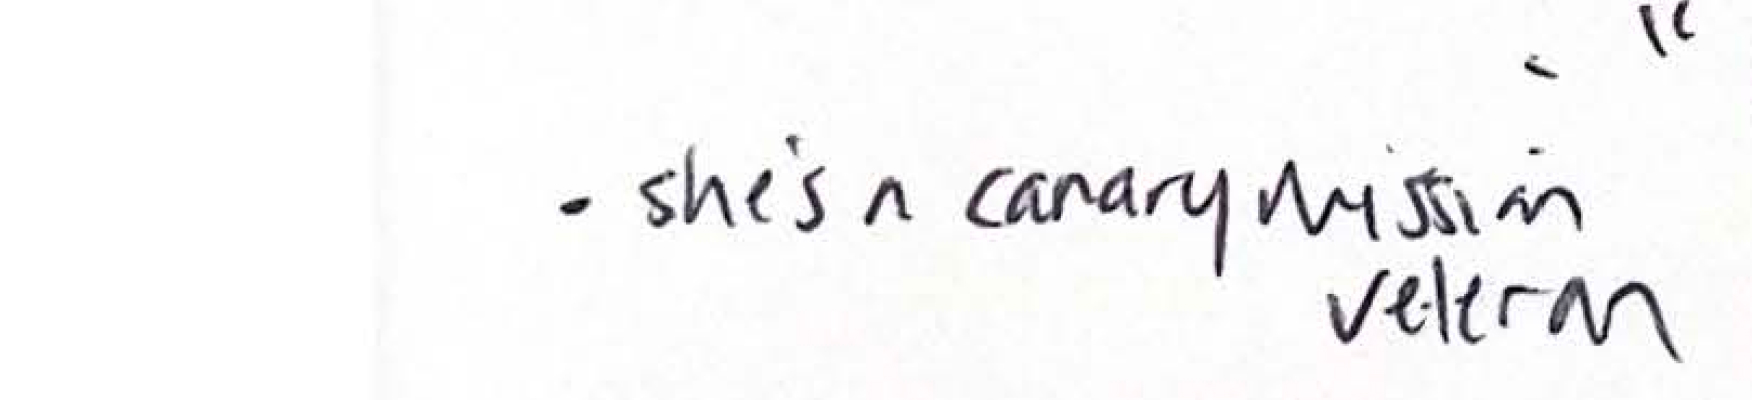 - she's a canary mission
veteran